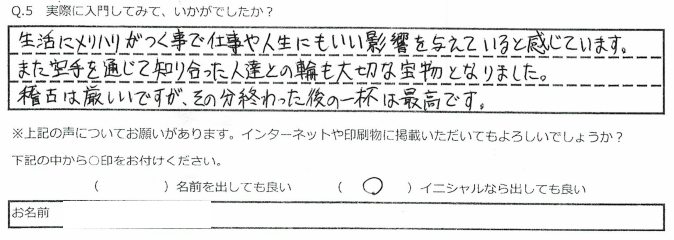 Q.5 実際に入門してみて、いかがでしたか？
生活にメリハリがつく事で仕事や人生にもいい影響を与えていると感じています。
また空手を通じて知り合った人達との輪も大切な宝物となりました。
稽古は厳しいですが、その分終わった後の一杯は最高です。
※上記の声についてお願いがあります。インターネットや印刷物に掲載いただいてもよろしいでしょうか？
下記の中から○印をお付けください。
（　　　　）名前を出しても良い　　（　○　）イニシャルなら出しても良い
お名前